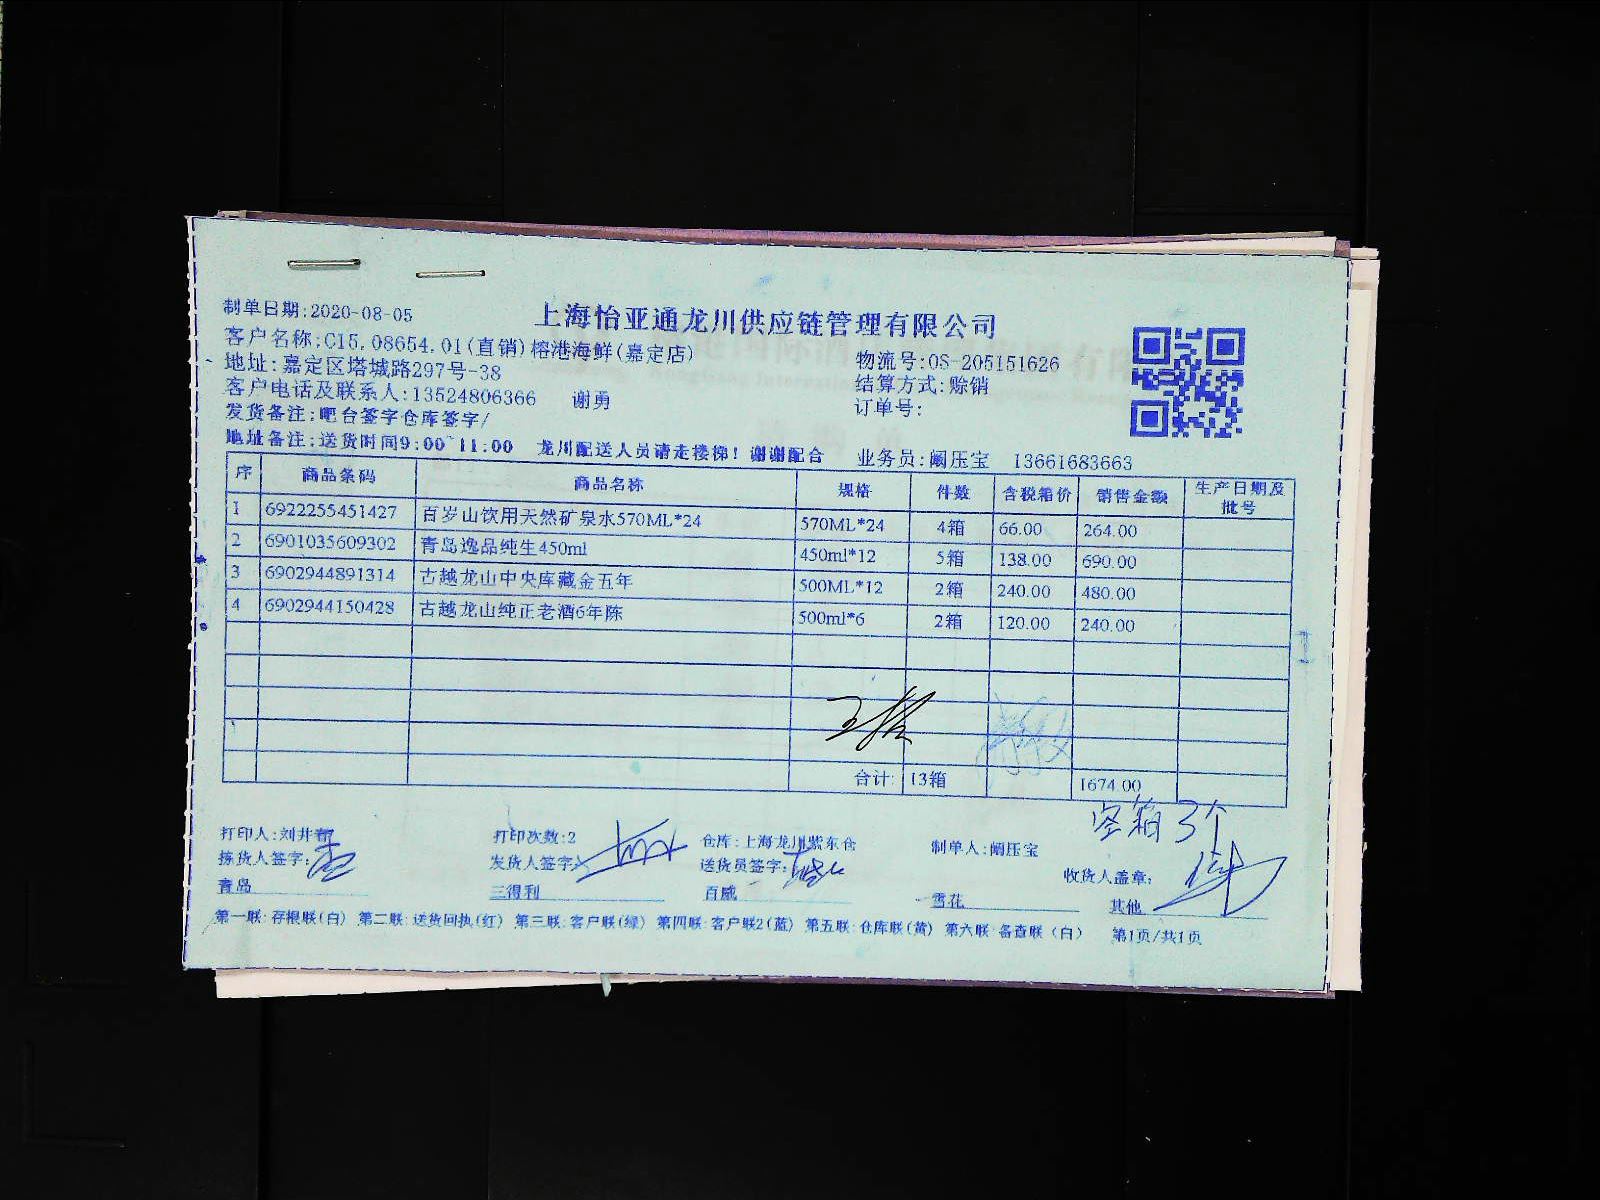 上海怡亚通龙川供应链管理有限公司
制单日期:2020-08-05
客户名称:C15.08654.01(直销)榕港海鲜(嘉定店)
物流号:OS-205151626
地址:嘉定区塔城路297号-38
结算方式:赊销
客户电话及联系人:13524806366 谢勇
订单号:
发货备注:吧台签字仓库签字/
地址备注:送货时间9:00~11:00 龙川配送人员请走楼梯!谢谢配合
业务员:阚压宝 13661683663
序 商品条码 商品名称 规格 件数 含税箱价 销售金额 生产日期及批号
1 6922255451427 百岁山饮用天然矿泉水570ML*24 570ML*24 4箱 66.00 264.00
2 6901035609302 青岛逸品纯生450ml 450ml*12 5箱 138.00 690.00
3 6902944891314 古越龙山中央库藏金五年 500ML*12 2箱 240.00 480.00
4 6902944150428 古越龙山纯正老酒6年陈 500ml*6 2箱 120.00 240.00
合计: 13箱 1674.00
空箱3个
打印人:刘井 打印次数:2 仓库:上海龙川紫东仓 制单人:阚压宝
拣货人签字: 发货人签字: 送货员签字: 收货人盖章:
青岛 三得利 百威 雪花 其他
第一联:存根联(白) 第二联:送货回执(红) 第三联:客户联(绿) 第四联:客户联2(蓝) 第五联:仓库联(黄) 第六联:备查联(白) 第1页/共1页